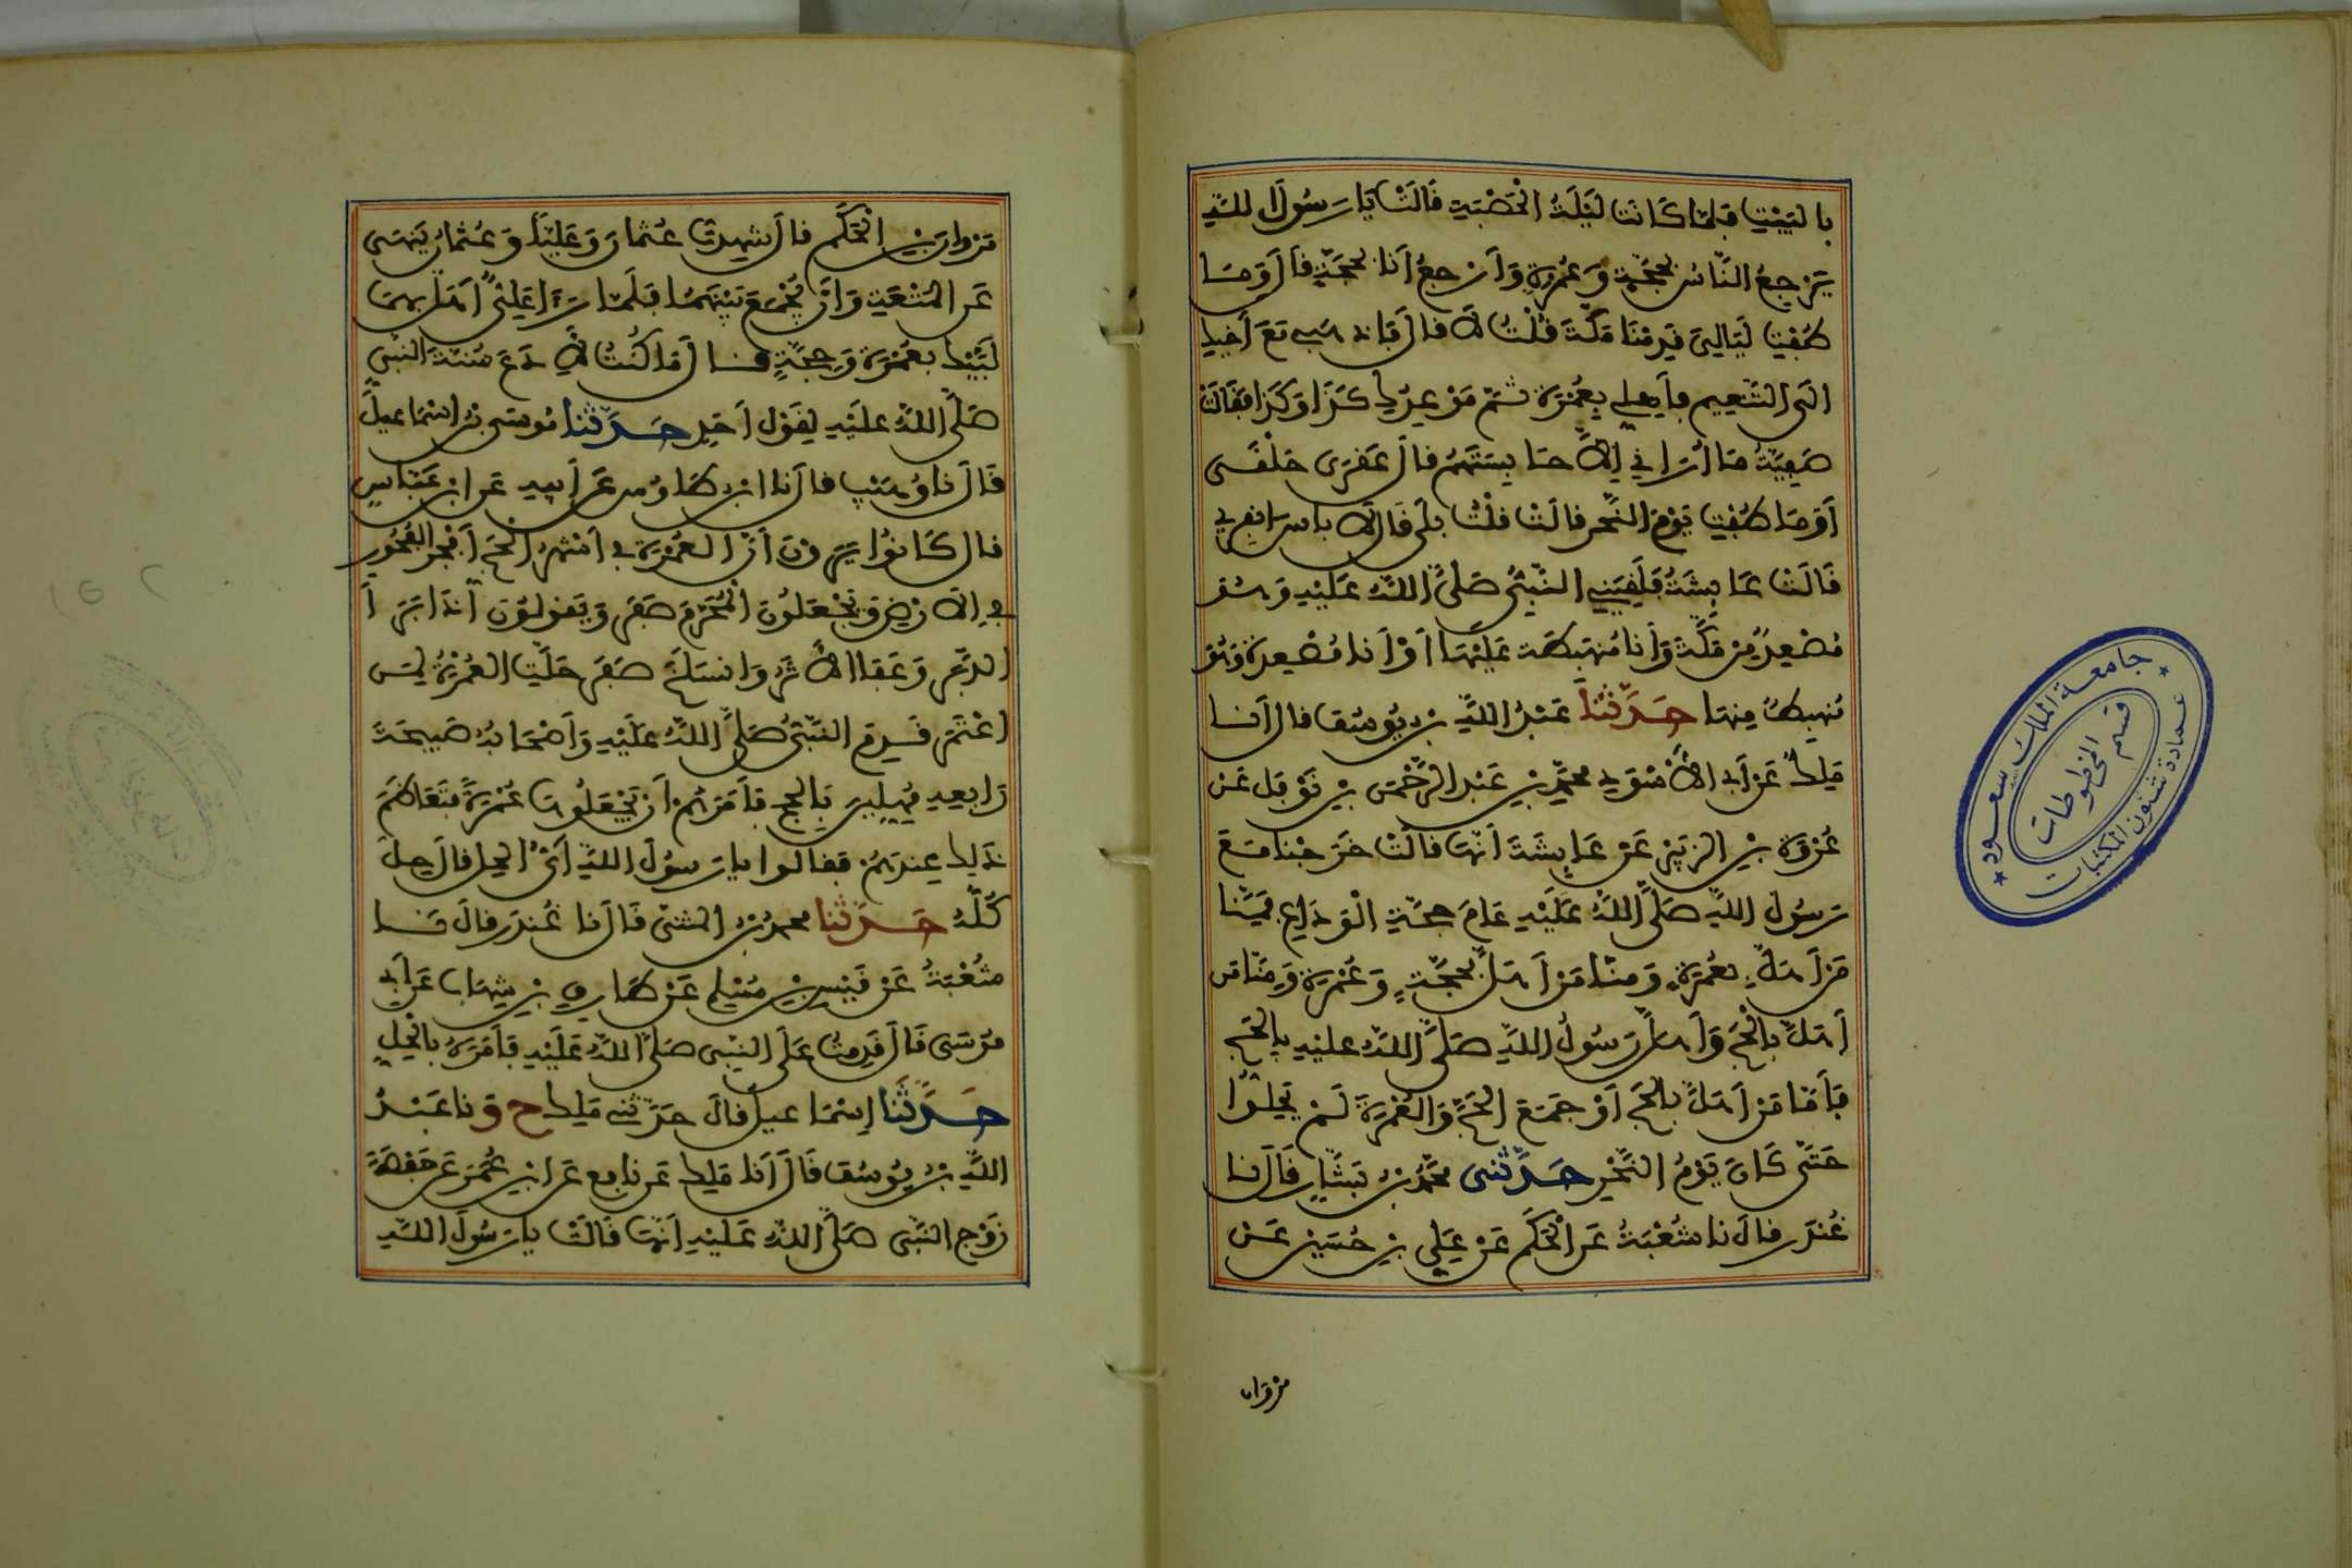 بالبَيْتِ فلمّا كَانَتْ لَيْلَةُ الْحَصْبَةِ قَالَتْ يَا رَسُولَ اللَّهِ
يَرْجِعُ النَّاسُ بحجّةٍ وَعُمْرَةٍ وَأَرْجعُ أنَا بحجّةٍ قالَ وَمَا
طُفْتِ لَيَالِيَ قَدِمْنَا مَكَّةَ قُلْتُ لَا قالَ فاذهبي مَعَ أَخِيكِ
الَى التَّنْعِيمِ فأهلي بِعُمْرَةٍ ثمّ مَوْعِدُكِ كَذَا وَكَذَا فَقَالَتْ
صَفِيَّةُ مَا أُرَانِي إِلَّا حابستهم قالَ عَقْرَى حَلْقَى
أَوَمَا طُفْتِ يَوْمَ النَّحْرِ قالَتْ قلتُ بلَى قَالَ لا باس انفِرِي
قَالَتْ عَايِشَةُ فَلَقِيَنِي النَّبِيُّ صَلَّى اللَّهُ عَلَيْهِ وَهُوَ
مُصْعِدٌ مِنْ مَكَّةَ وَأَنَا مُنهَبِطَة عَلَيْهَا أَوْ أَنَا مُصْعِدة وَهُوَ
مُنهبِطٌ مِنهَا حَدَّثَنَا عَبْدُ اللَّهِ بن يُوسُفَ قالَ أنَا
مَلِكٌ عَنْ أَبي الأَسْوَدِ محمّدِ بْنِ عَبْدِ الرّحْمَنِ بْنِ نَوْفَلٍ عَنْ
عُرْوَةَ بْنِ الزبَيْرِ عَنْ عَايِشَةَ أَنّهَا قالَتْ خَرَجْنا مَعَ
رَسُولِ اللَّهِ صَلَّى اللَّهُ عَلَيْهِ عَامَ حجّةِ الْوَدَاعِ فَمِنَّا
مَنْ أَهَلَّ بعُمْرَةٍ وَمِنّا مَنْ أَهَلَّ بحجّةٍ وَعُمْرَةٍ وَمِنّا مَن
أَهَلَّ بالحَجِّ وَأَهلَّ رَسُولُ اللَّهِ صَلَّى اللَّهُ عليْهِ بِالحَجِّ
فَأَمّا مَنْ أَهَلَّ بالحَجِّ أَوْ جَمَعَ الحَجَّ وَالعُمْرَةَ لَمْ يَحِلُّوا
حَتَّى كَانَ يَوْمُ النَّحْرِ حَدَّثَنِي محَمّدُ بْنُ بَشَّارٍ قَالَ نَا
غُنْدَر قالَ نَا شُعْبَةُ عَنِ الْحَكَمِ عَنْ عَلِيِّ بْنِ حُسَيْنٍ عَنْ
مروان
مَرْوانَ بْنِ الْحَكَمِ قالَ شهِدتُ عُثمانَ وَعَلِيّاً وَعُثمانُ يَنهَى
عَنِ المُتْعَةِ وَأَنْ يُجْمَعَ بَيْنَهُمَا فَلَمّا رَأَى عَلِيٌّ أَهَلَّ بهِمَا
لَبَّيْكَ بعُمْرَةٍ وَحِجّةٍ قالَ مَا كُنْتُ لأَدَعَ سُنّةَ النّبِيِّ
صَلَّى اللَّهُ عَلَيْهِ لِقَوْلِ أَحَدٍ حَدَّثَنَا مُوسَى بْنُ اسْمَاعِيلَ
قَالَ نَا وُهَيْب قالَ نَا ابن طَاوُس عَنْ أَبِيهِ عَنِ ابْنِ عَبّاسٍ
قال كَانُوا يَرَوْنَ أَنَّ العُمْرَةَ في أَشْهُرِ الحَجِّ أَفْجَر الفُجُورِ
في الأَرْضِ وَيَجْعَلُونَ الْمُحَرَّمَ صَفَرَ وَيَقولُونَ إذَا بَرَأَ
الدَّبَر وَعَفَا الأَثَرْ وَانسَلَخَ صَفَر حَلَّتِ العُمْرَةُ لِمَنِ
اعْتَمَر قَدِمَ النَّبِيُّ صَلَّى اللَّهُ عَلَيْهِ وَأَصْحَابُهُ صَبِيحَةَ
رَابِعَةٍ مُهِلِّينَ بِالحجِّ فأَمَرَهُمْ أَنْ يَجْعَلُوهَا عُمْرَةً فتَعَاظَمَ
ذَلِكَ عِندَهُمْ فقالوا يا رَسُولَ اللَّهِ أَيُّ الحِلِّ قالَ حِلٌّ
كُلُّهُ حَدَّثنا محمدُ بْنُ المثنى قَالَ نَا غُنْدَر قالَ نَا
شُعْبَةُ عَنْ قَيْسِ بْنِ مُسْلِمٍ عَنْ طَارِقِ بْنِ شِهَابٍ عَنْ أَبي
مُوسَى قَالَ قَدِمْتُ عَلَى النّبِي صَلَّى اللَّهُ عَلَيْهِ فَأَمَرَهُ بالْحِلِّ
حَدَّثَنَا إِسْمَاعِيل قالَ حَدّثَنِي مَلِك ح وَنا عَبْدُ
اللَّهِ بْنُ يُوسُفَ قَالَ أَنَا مَلِك عَنْ نافِعٍ عَنِ ابْنِ عُمَرَ عَنْ حَفْصَةَ
زَوْجِ النَّبِي صَلَّى اللَّهُ عَلَيْهِ أَنَّهَا قَالَتْ يا رَسُولَ اللَّهِ
جامعة الملك سعود
عمادة شئون المكتبات
قسم المخطوطات